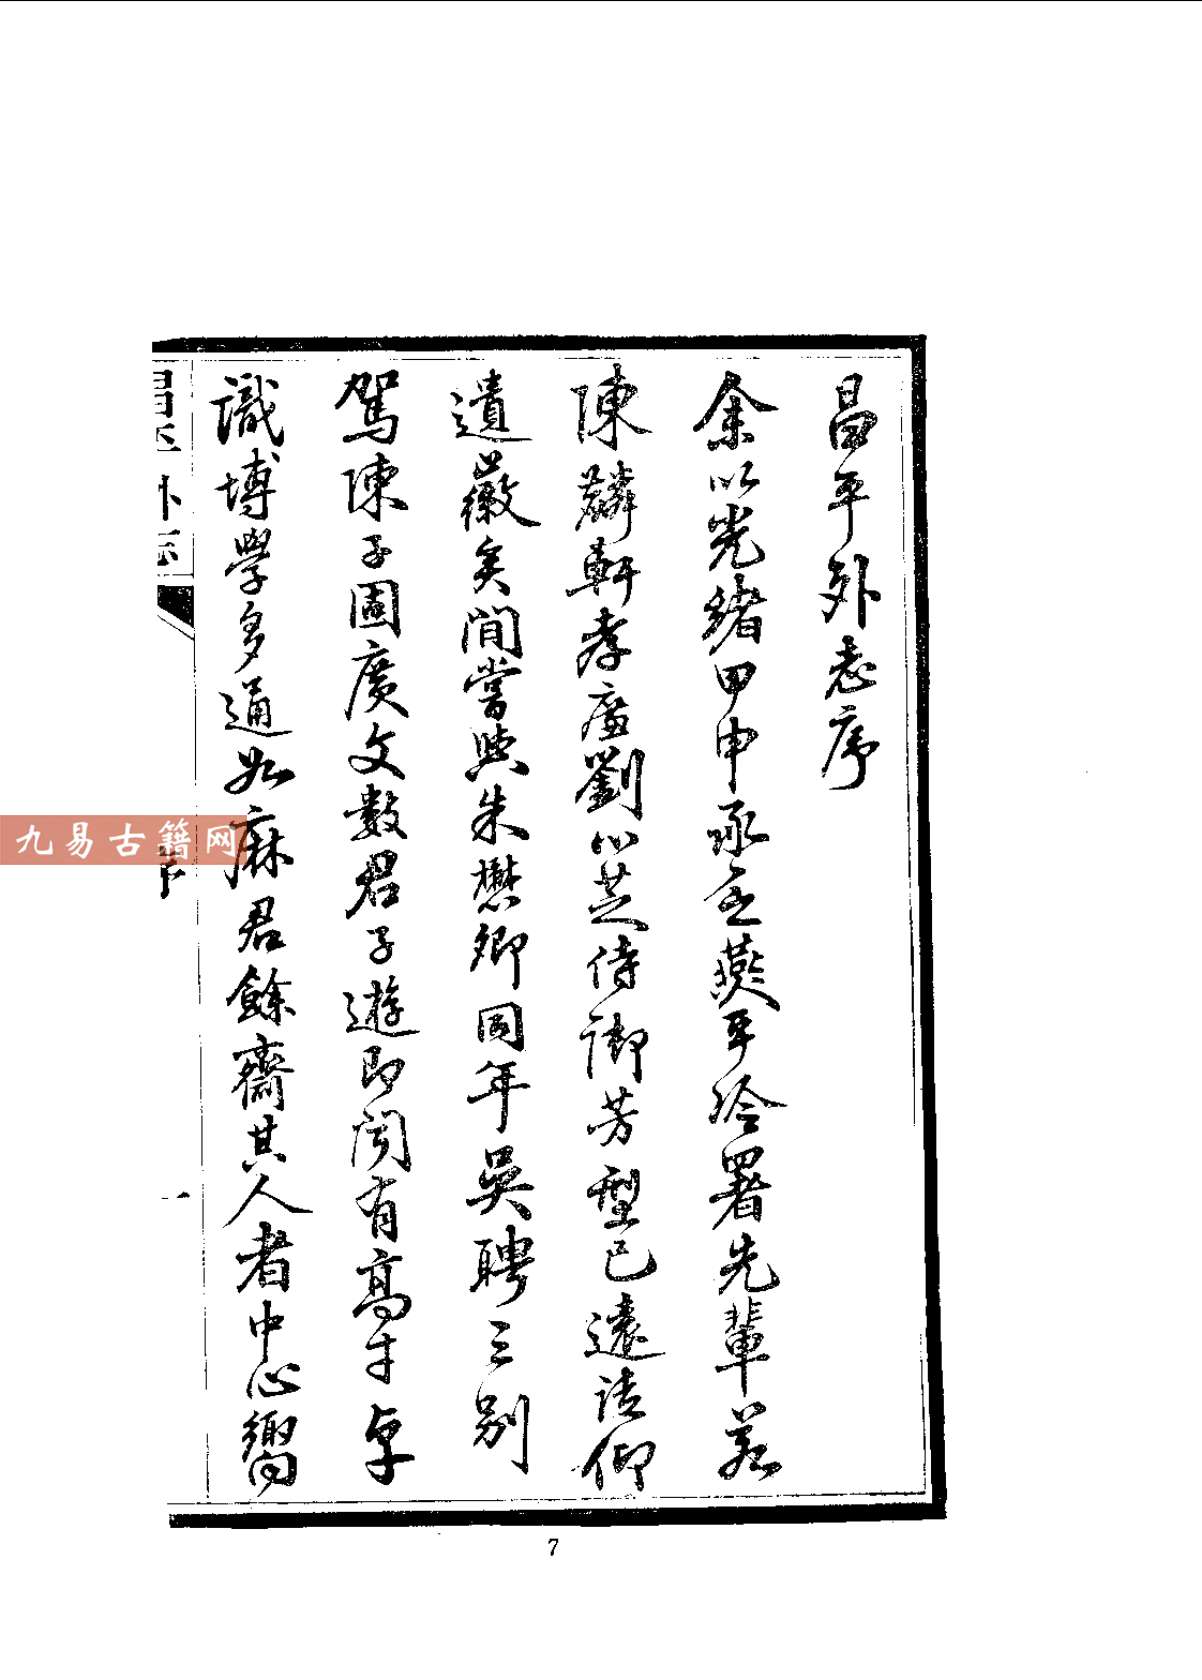 昌平外志序
余以光緒甲申承乏燕平冷署先輩若
陳麟軒孝廉劉心芝侍御芳型已遠法仰
遺徽矣間嘗與朱懋卿同年吳聘三別
駕陳子固廣文數君子遊即聞有高才卓
識博學多通如麻君餘齋其人者中心嚮
昌平外志
序
一
九易古籍网
7